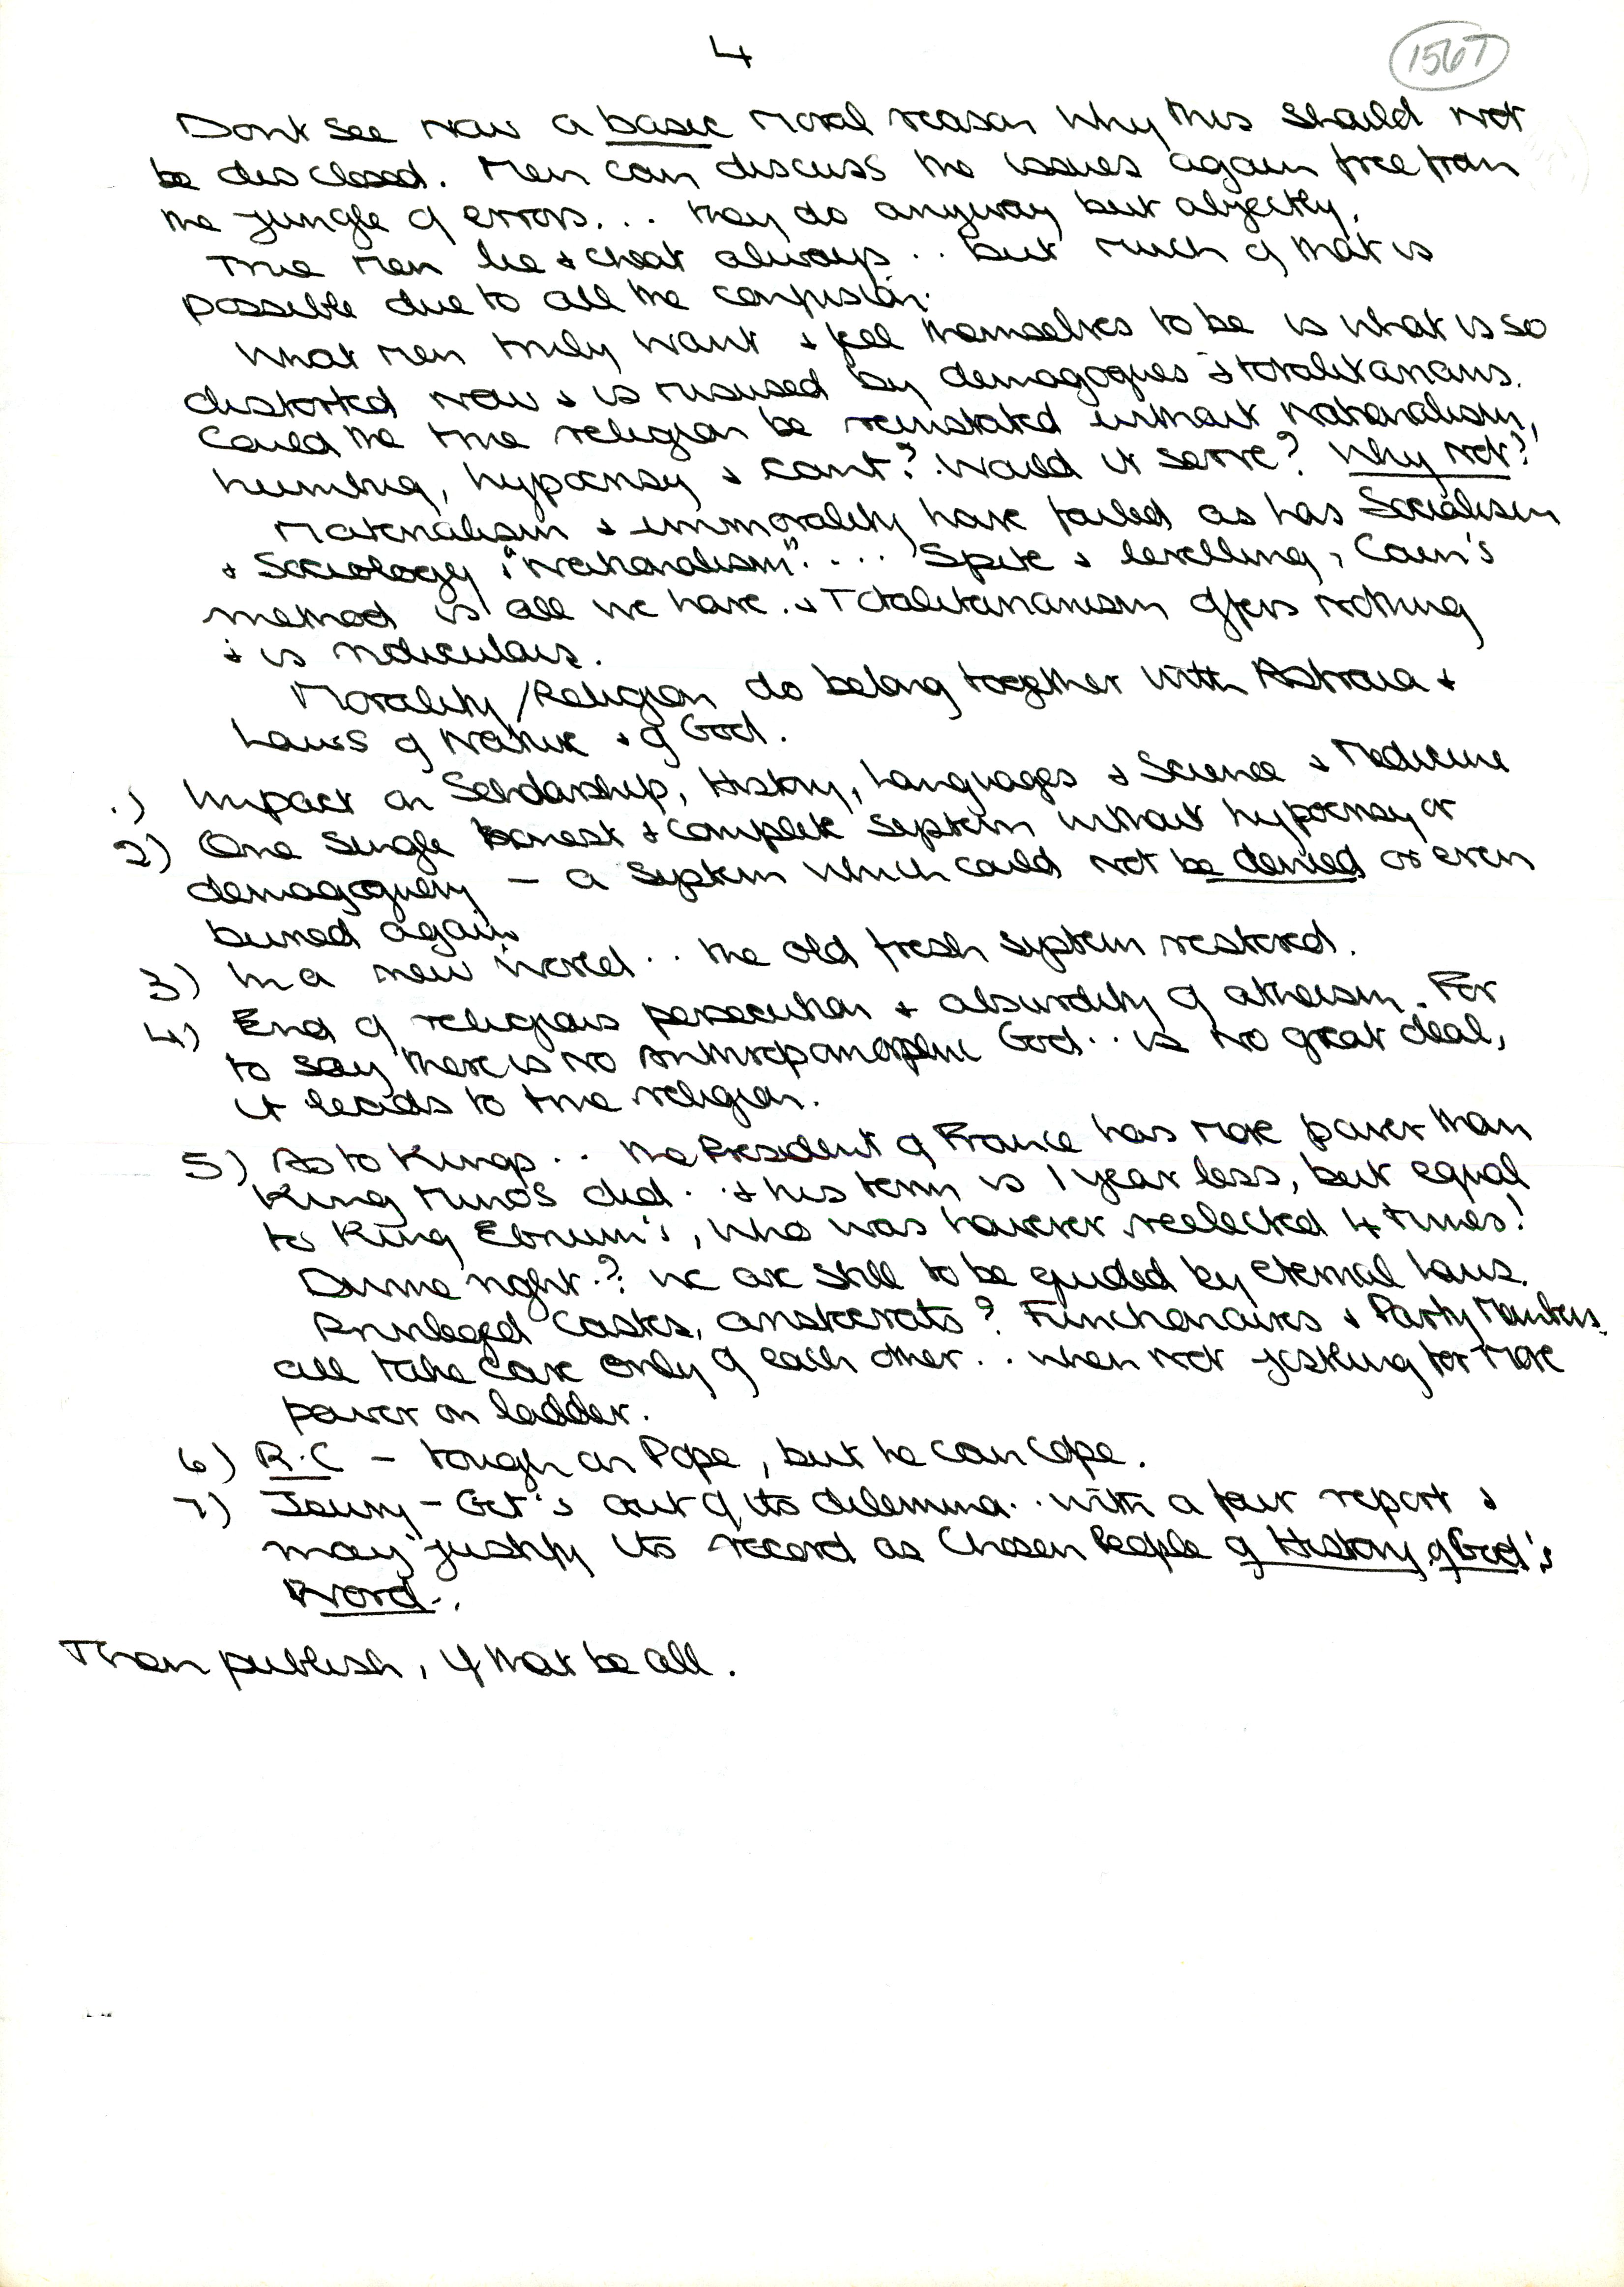 4
156T
Dont see now a basic moral reason why this should not
be disclosed. Men can discuss the issues again free from
the jungle of errors... they do anyway but abjectly.
True men lie + cheat always .. but much of that is
possible due to all the confusion.
What men truly want + feel themselves to be is what is so
distorted now + is misused by demagogues + totalitarians.
Could the true religion be reinstated without nationalism,
humbug, hypocrisy + cant? Would it serve? Why not?
Materialism + immorality have failed as has Socialism
+ Sociology, "Nationalism".... Spite + levelling, Cain's
method is all we have. + Totalitarianism offers nothing
+ is ridiculous.
Morality/Religion do belong together with Astraea +
Laws of Nature + of God.
1) Impact on Scholarship, History, Languages + Science + Medicine
2) One single honest + complete system without hypocrisy or
demagoguery - a system which could not be denied or even
buried again.
3) In a new world .. the old fresh system restored.
4) End of religious persecution + absurdity of atheism. For
to say there is no anthropomorphic God .. is no great deal,
it leads to true religion.
5) As to Kings .. the President of France has more power than
King Minos did .. + his term is 1 year less, but equal
to King Ebrum's, who was however reelected 4 times!
Divine right? We are still to be guided by eternal laws.
Privileged Castes, aristocrats? Functionaires + Party Members.
all take care only of each other .. when not jostling for more
power on ladder.
6) R.C - tough on Pope, but he can cope.
7) Jewry - Get's out of its dilemma .. with a fair report +
may justify its record as Chosen People of History, of God's
Word..
Then publish, if that be all.